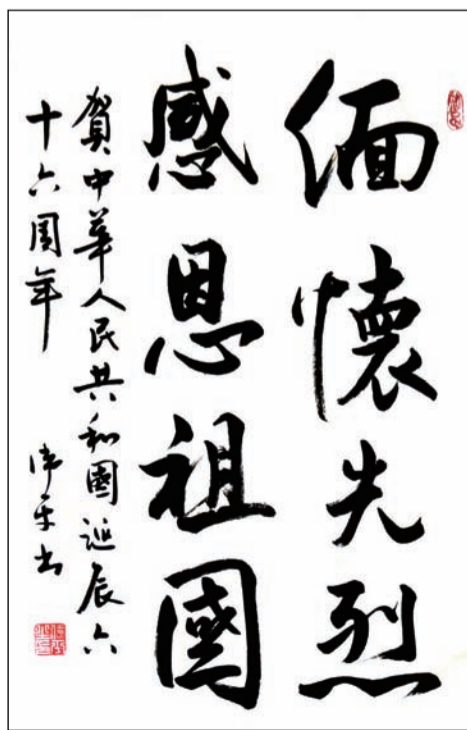 缅懷先烈
感恩祖國
賀中華人民共和國诞辰六
十六周年